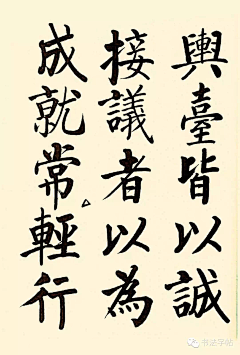 輿臺皆以誠
接議者以為
成就常輕行
书法字帖